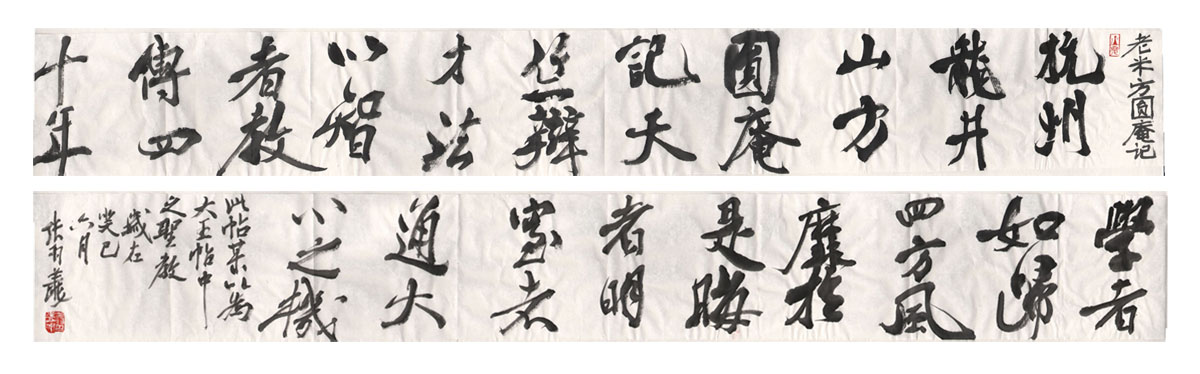 老米方圆庵记
杭州
龍井
山方
圓庵
記天
竺辯
才法
以智
者教
傳四
十年
學者
如歸
四方風
靡於
是晦
者明
窒者
通大
小之機
此帖某以為
大王帖中
之聖教
歲在
癸巳
六月